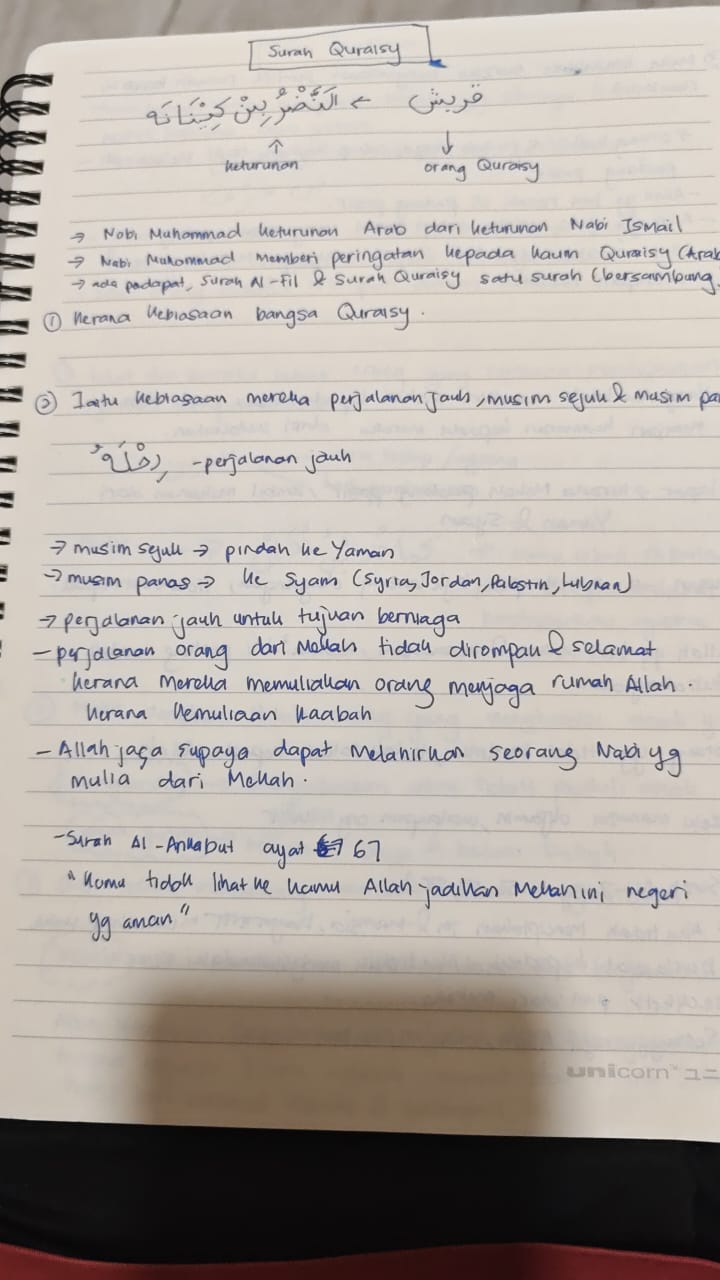 Surah Quraisy
قريش ← النَّضْرُ بِنْ كِنَانَه
keturunan orang Quraisy
→ Nabi Muhammad keturunan Arab dari keturunan Nabi Ismail
→ Nabi Muhammad memberi peringatan kepada kaum Quraisy (Arab
→ ada padapat, Surah Al-Fil & Surah Quraisy satu surah (bersambung
① Kerana kebiasaan bangsa Quraisy.
② Iaitu kebiasaan mereka perjalanan jauh, musim sejuk & musim pa
رِحْلَةٌ - perjalanan jauh
→ musim sejuk → pindah ke Yaman
→ musim panas → ke Syam (Syria, Jordan, Palestin, Lubnan)
→ perjalanan jauh untuk tujuan berniaga
- perjalanan orang dari Mekah tidak dirompak & selamat
kerana mereka memuliakan orang menjaga rumah Allah.
kerana kemuliaan Kaabah
- Allah jaga supaya dapat melahirkan seorang Nabi yg
mulia dari Mekah.
- Surah Al-Ankabut ayat 67
"Kamu tidak lihat ke kamu Allah jadikan Mekah ini negeri
yg aman"
unicorn ユニ